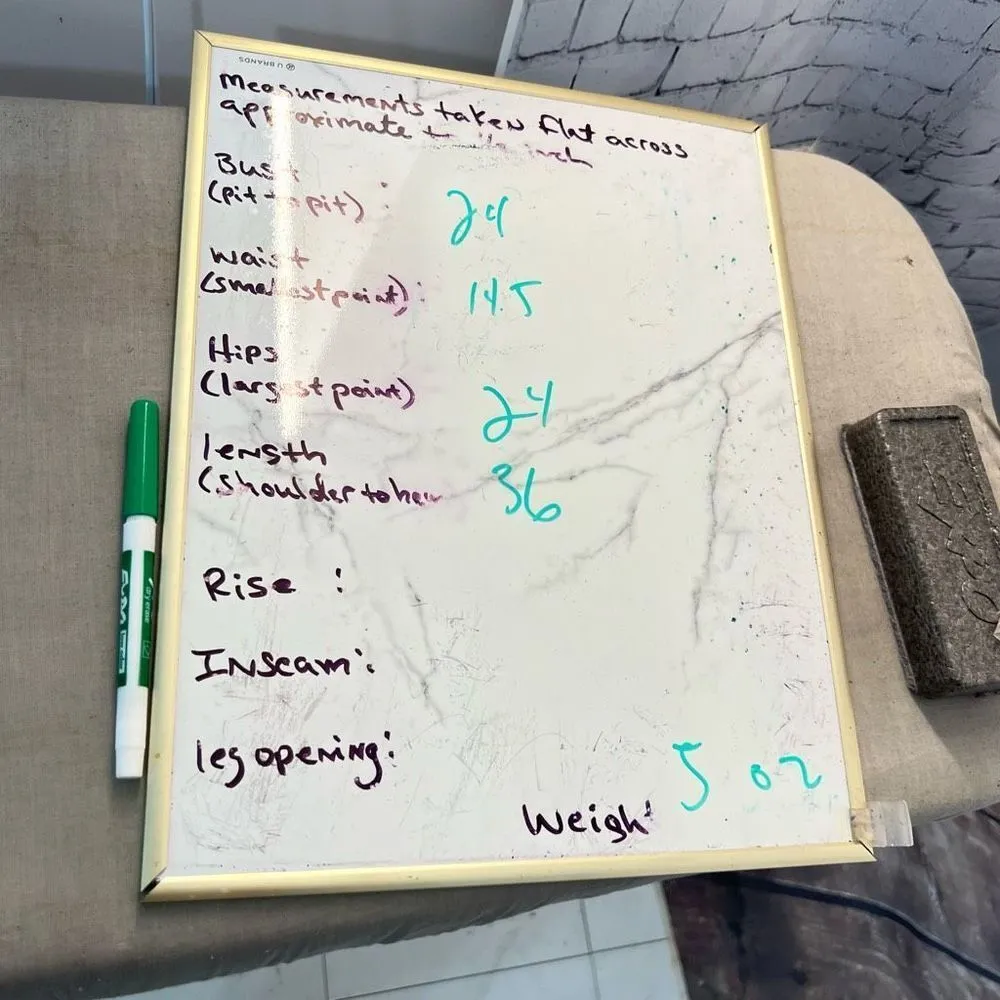 U BRANDS
Measurements taken flat across
approximate inch
Bust
(pit to pit) :
24
waist
(smallest point) :
14.5
Hips
(largest point)
24
length
(shoulder to hem
36
Rise :
Inseam :
leg opening :
5 oz
Weigh